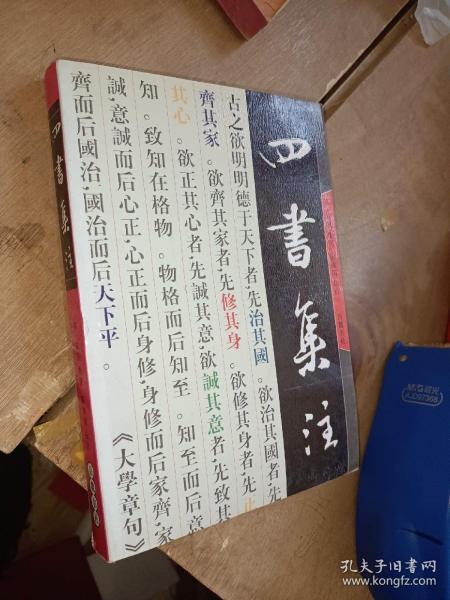 四書集注
古之欲明明德于天下者,先治其國。欲治其國者,先
齊其家。欲齊其家者,先修其身。欲修其身者,先正
其心。欲正其心者,先誠其意,欲誠其意者,先致其
知。致知在格物。物格而后知至。知至而后意
誠,意誠而后心正,心正而后身修,身修而后家齊,家
齊而后國治,國治而后天下平。
《大學章句》
四書集注
M&G晨光
AJD97368
孔夫子旧书网
www.kongfz.com